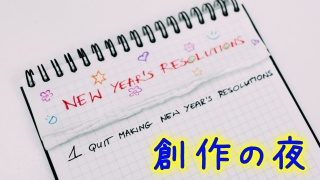 NEW YEAR'S RESOLUTIONS
1 QUIT MAKING NEW YEAR'S RESOLUTIONS
創作の夜